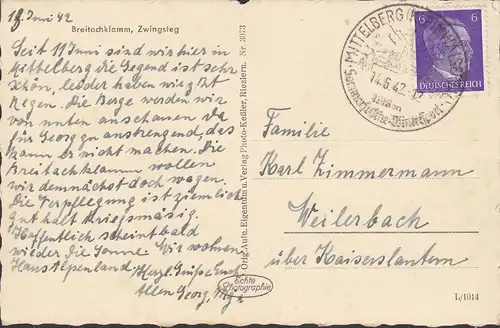 18. Juni 42
Breitachklamm, Zwingsteg
Seit 11 Juni sind wir hier in
Mittelberg die Gegend ist sehr
schön, leider haben wir jetzt
Regen. Die Berge werden wir
von unten anschauen da
für Georg zu anstrengend, das
kann er nicht machen. Die
Breitachklamm wollen
wir demnächst doch wagen.
Die Verpflegung ist ziemlich
gut halt kriegsmäsig.
Hoffentlich scheint bald
wieder die Sonne. Wir wohnen
Haus Alpenland. Herzl. Grüße Euch
Allen Georg,
Orig.-Aufn. Eigentum u. Verlag Photo-Keßler, Riezlern. Nr. 3073
Echte
Photographie
MITTELBERG
14.6.42-12
Sommerfrische-Wintersport
6 6
DEUTSCHES REICH
Familie
Karl Zimmermann
Weilerbach
über Kaiserslautern
L/1014